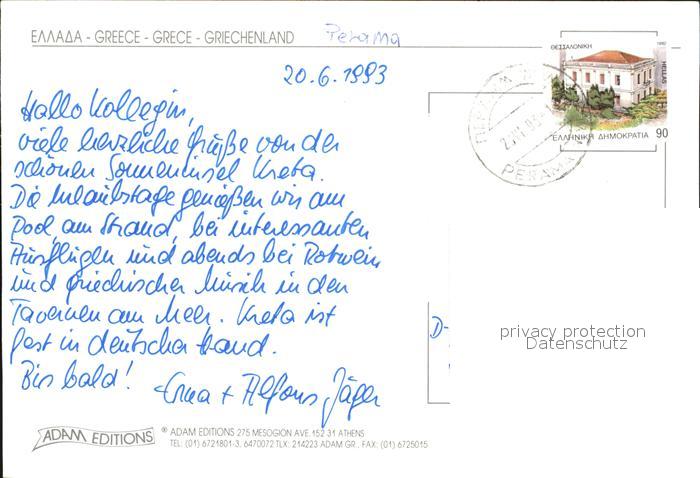 ΕΛΛΑΔΑ - GREECE - GRECE - GRIECHENLAND Perama
20.6.1993
ΘΕΣΣΑΛΟΝΙΚΗ 1992
HELLAS
ΕΛΛΗΝΙΚΗ ΔΗΜΟΚΡΑΤΙΑ 90
PERAMA
Hallo Kollegin,
viele herzliche Grüße von der
schönen Sonneninsel Kreta.
Die Urlaubstage genießen wir am
Pool, am Strand, bei interessanten
Ausflügen und abends bei Rotwein
und griechischer Musik in den
Tavernen am Meer. Kreta ist
fest in deutscher Hand.
Bis bald!
Erna + Alfons Jäger
D-
privacy protection
Datenschutz
ADAM EDITIONS
® ADAM EDITIONS 275 MESOGION AVE. 152 31 ATHENS
TEL: (01) 6721801-3, 6470072 TLX: 214223 ADAM GR., FAX: (01) 6725015